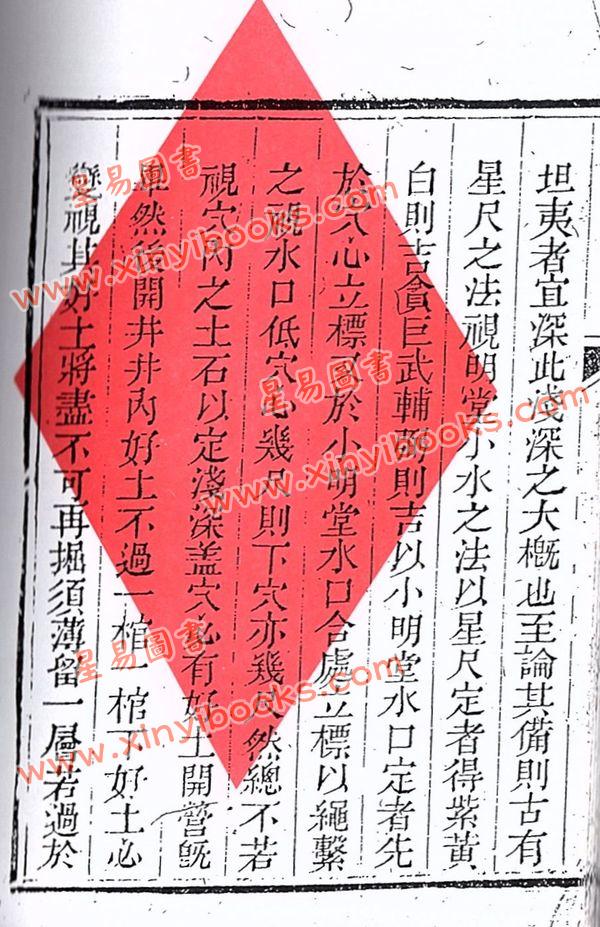 坦夷者宜深此淺深之大槪也至論其備則古有
星尺之法視明堂小水之法以星尺定者得紫黃
白則吉貪巨武輔弼則吉以小明堂水口定者先
於穴心立標於小明堂水口合處立標以繩繫
之視水口低穴心幾尺則下穴亦幾尺然總不若
視穴內之土石以定淺深盖穴必有好土開營旣
然後開井井內好土不過一棺一棺下好土心
變視其好土將盡不可再掘須薄留一層若過於
星易圖書
www.xinyibooks.com
星易圖書
www.xinyibooks.com
星易圖書
www.xinyibooks.com